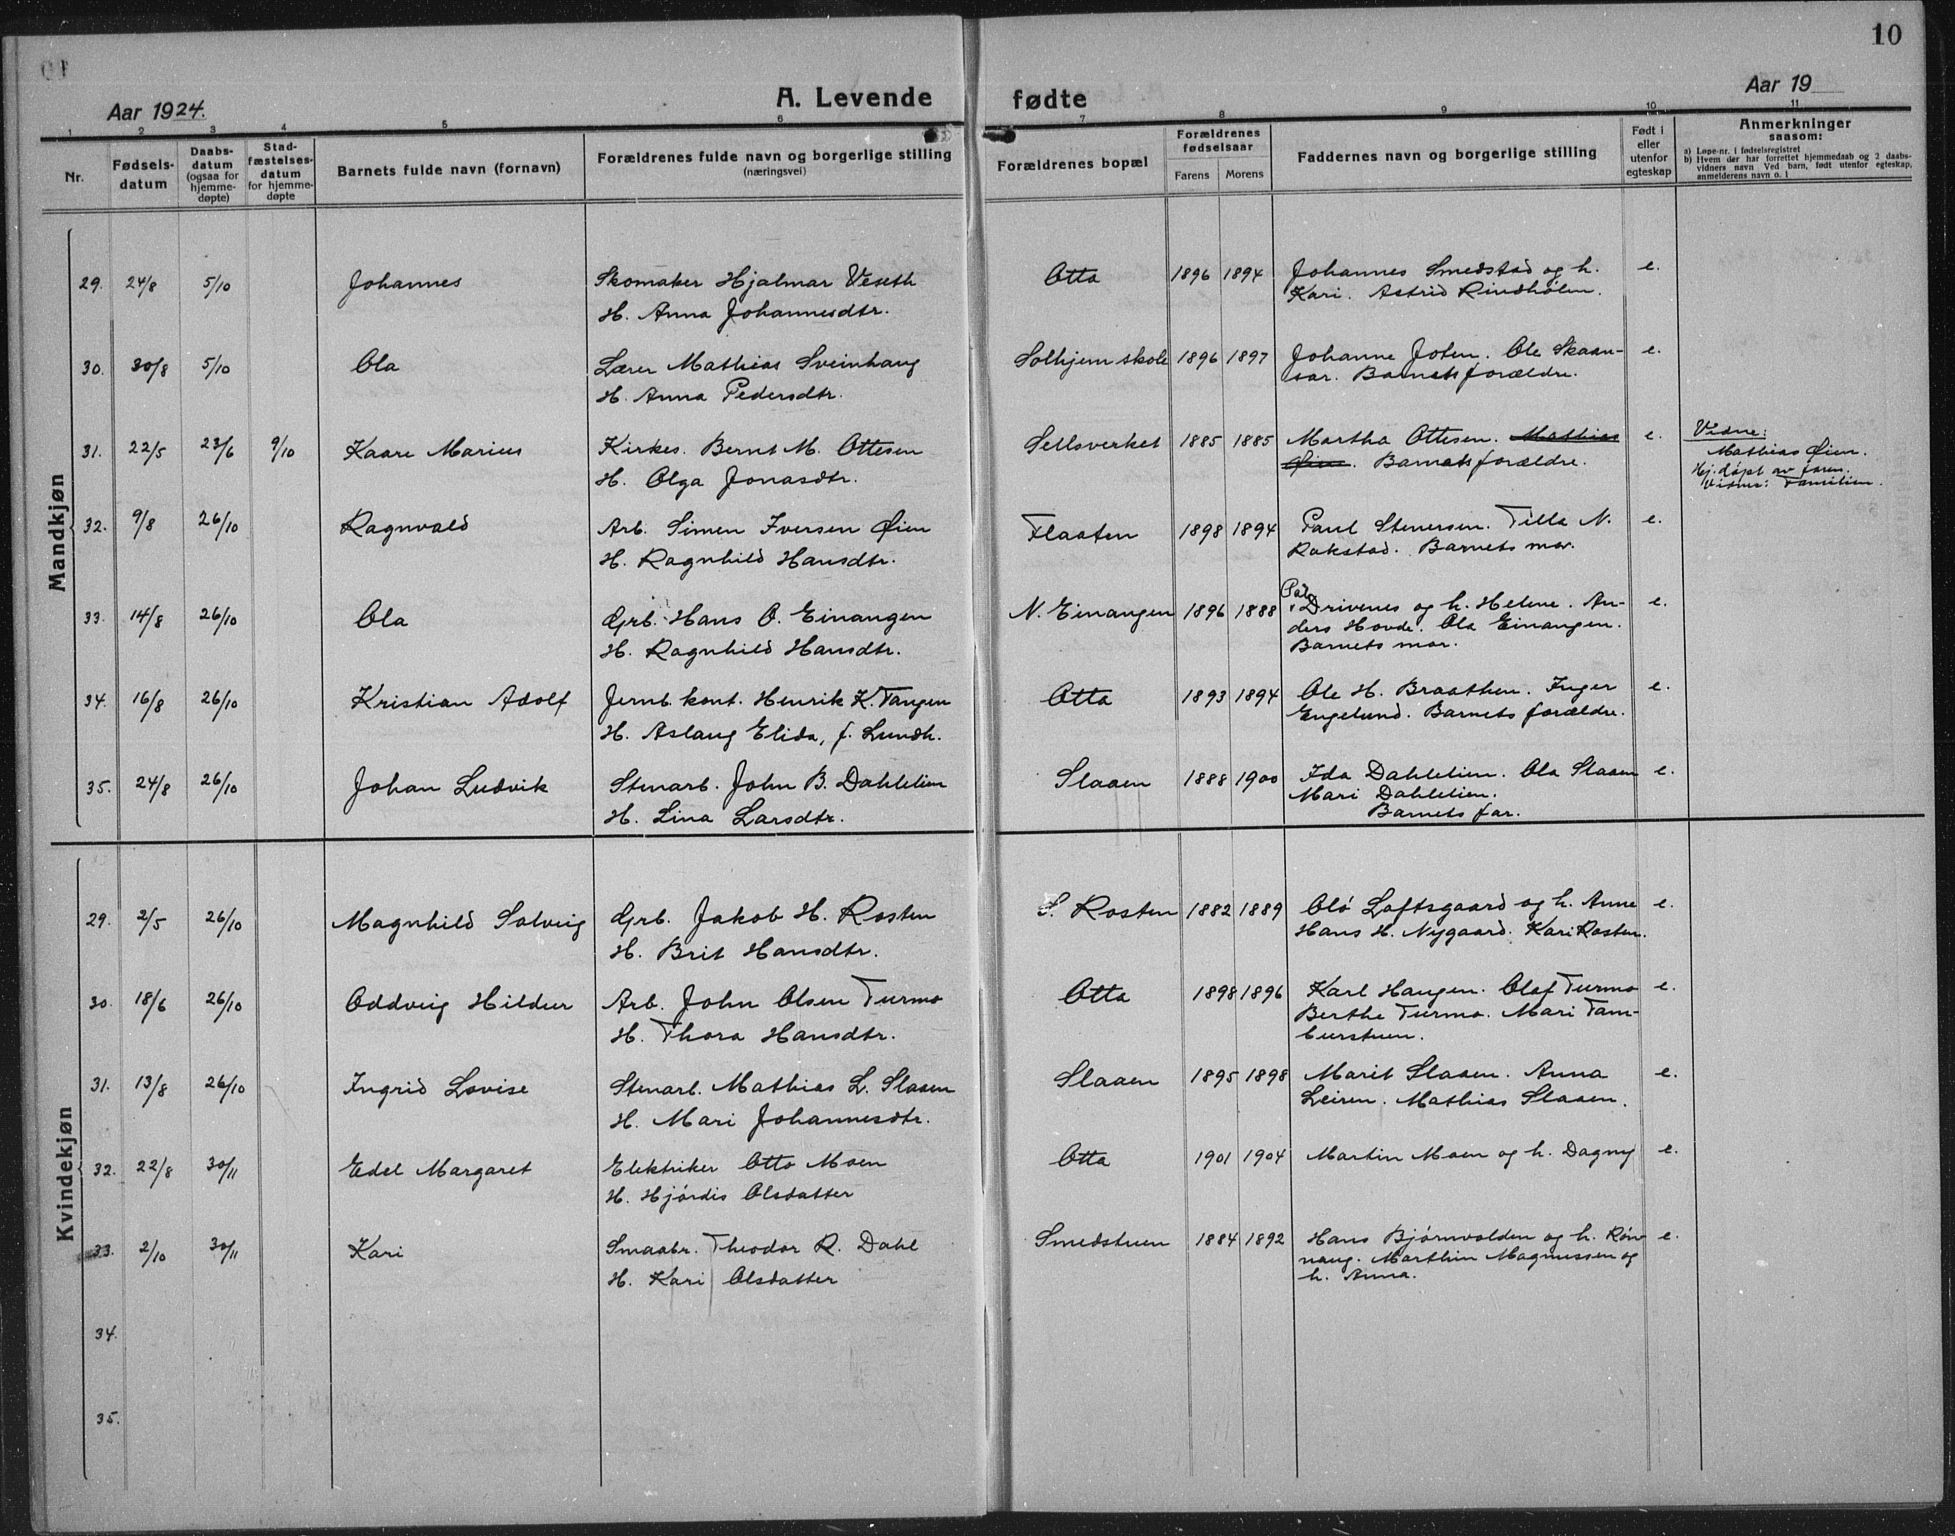 10
Aar 1924.
A. Levende fødte
Aar 19
1 2 3 4 5 6 7 8 9 10 11
Nr.
Fødsels-
datum
Daabs-
datum
(ogsaa for
hjemme-
døpte)
Stad-
fæstelses-
datum
for hjemme-
døpte
Barnets fulde navn (fornavn)
Forældrenes fulde navn og borgerlige stilling
(næringsvei)
Forældrenes bopæl
Forældrenes
fødselsaar
Farens Morens
Faddernes navn og borgerlige stilling
Født i
eller
utenfor
egteskap
Anmerkninger
saasom:
a) Løpe-nr. i fødselsregistret
b) Hvem der har forrettet hjemmedaab og 2 daabs-
vidners navn Ved barn, født utenfor egteskap,
anmelderens navn o. l
Mandkjøn
29. 24/8 5/10 Johannes Skomaker Hjalmar Veseth Otta 1896 1894 Johannes Smedstad og h. e.
H. Anna Johannesdtr. Kari. Astrid Rindhølen.
30. 30/8 5/10 Ola Lærer Mathias Sveinhaug Solhjem skole 1896 1897 Johanne Joten. Ole Skaan- e.
H. Anna Pedersdtr. sar. Barnets forældre.
31. 22/5 23/6 9/10 Kaare Marius Kirkes. Bernt M. Ottesen Sellsverket 1885 1885 Martha Ottesen. Mathias e. Vidne:
H. Olga Jonasdtr. Øien. Barnets forældre. Mathias Øien.
Hj. døpt av faren.
Vidne: Familien.
32. 9/8 26/10 Ragnvald Arb. Simen Iversen Øien Flaaten 1898 1894 Paul Stenersen. Tilla N. e.
H. Ragnhild Hansdtr. Rakstad. Barnets mor.
33. 14/8 26/10 Ola Grb. Hans O. Einangen N. Einangen 1896 1888 Pål Drivenes og h. Helene. An- e.
H. Ragnhild Hansdtr. ders Hovde. Ola Einangen.
Barnets mor.
34. 16/8 26/10 Kristian Adolf Jernb. kont. Henrik K. Tangen Otta 1893 1894 Ole H. Braathen. Inger e.
H. Aslaug Elida, f. Lundh. Engelund. Barnets forældre.
35. 24/8 26/10 Johan Ludvik Stenarb. John B. Dahlelien Slaaen 1888 1900 Ida Dahlelien. Ola Slaaen e.
H. Lina Larsdtr. Mari Dahlelien.
Barnets far.
Kvindekjøn
29. 2/5 26/10 Magnhild Solveig Grb. Jakob H. Rosten S. Rosten 1882 1889 Olö Loftsgaard og h. Anne e.
H. Brit Hansdtr. Hans H. Nygaard. Kari Rosten.
30. 18/6 26/10 Oddveig Hildur Arb. John Olsen Turmo Otta 1898 1896 Karl Haugen. Olaf Turmo e.
H. Thora Hansdtr. Berthe Turmo. Mari Tam-
burstuen.
31. 13/8 26/10 Ingrid Lovise Stenarb. Mathias L. Slaaen Slaaen 1895 1898 Marit Slaaen. Anna e.
H. Mari Johannesdtr. Leiren. Mathias Slaaen.
32. 22/8 30/11 Edel Margaret Elektriker Otto Moen Otta 1901 1904 Martin Moen og h. Dagny e.
H. Hjördis Olsdatter
33. 2/10 30/11 Kari Smaabr. Theodor R. Dahl Smedstuen 1884 1892 Hans Bjørnvolden og h. Røn- e.
H. Kari Olsdatter naug. Marthin Magnussen og
h. Anna.
34.
35.